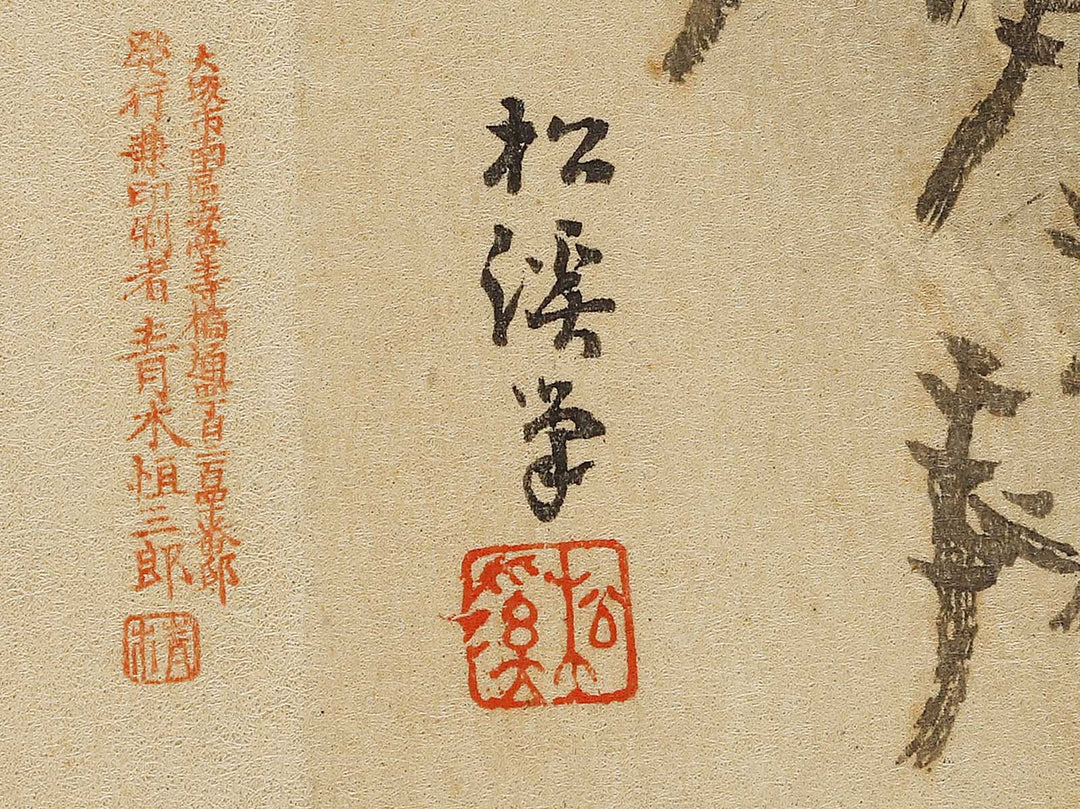 松溪筆
松溪
大阪市南區安堂寺橋通
發行兼印刷者 青木恒三郎
青木